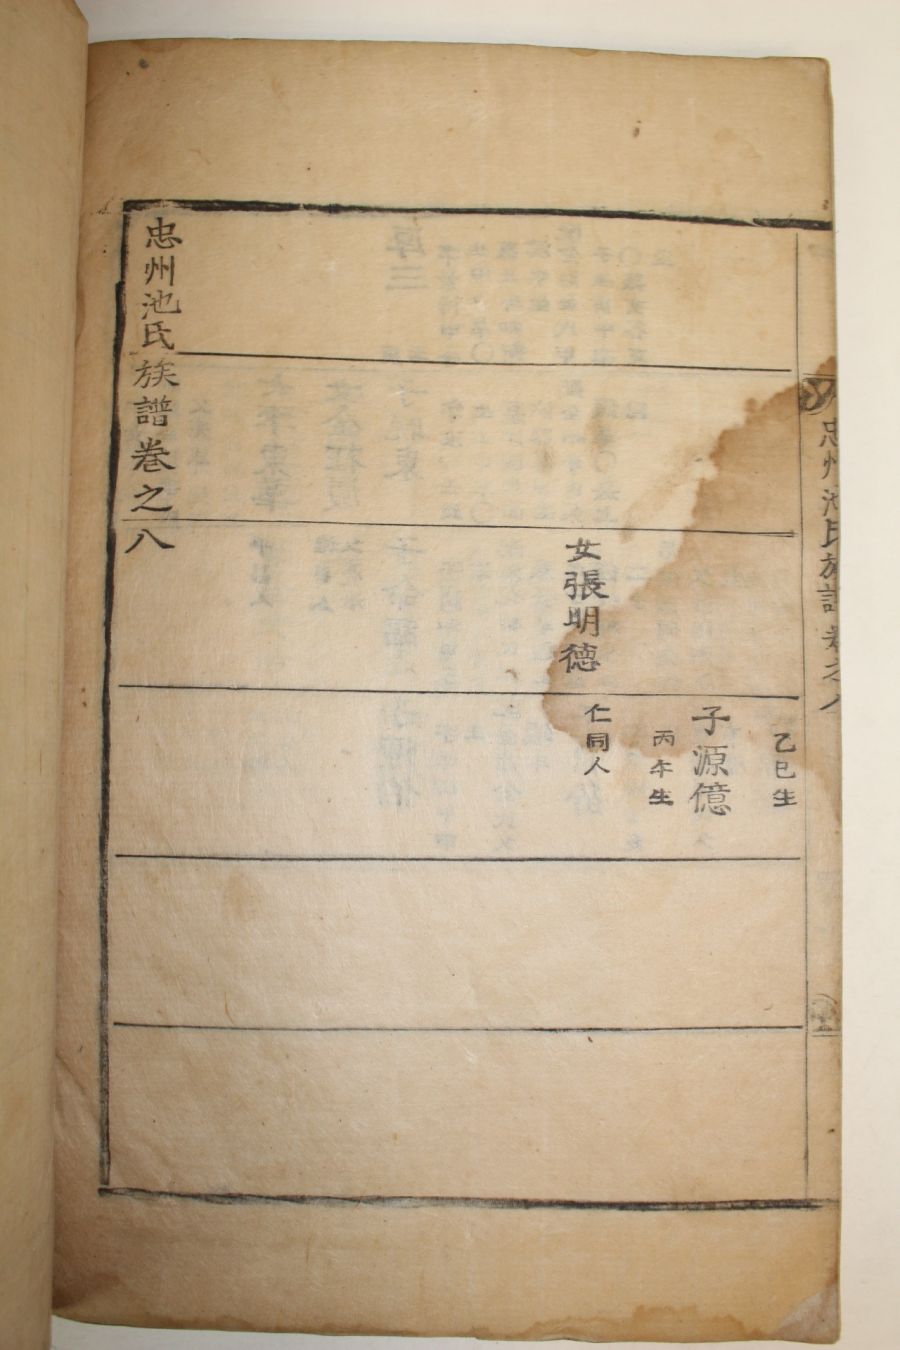 忠州池氏族譜卷之八
乙巳生
子源億
丙午生
女張明德
仁同人
忠州池氏族譜卷之八